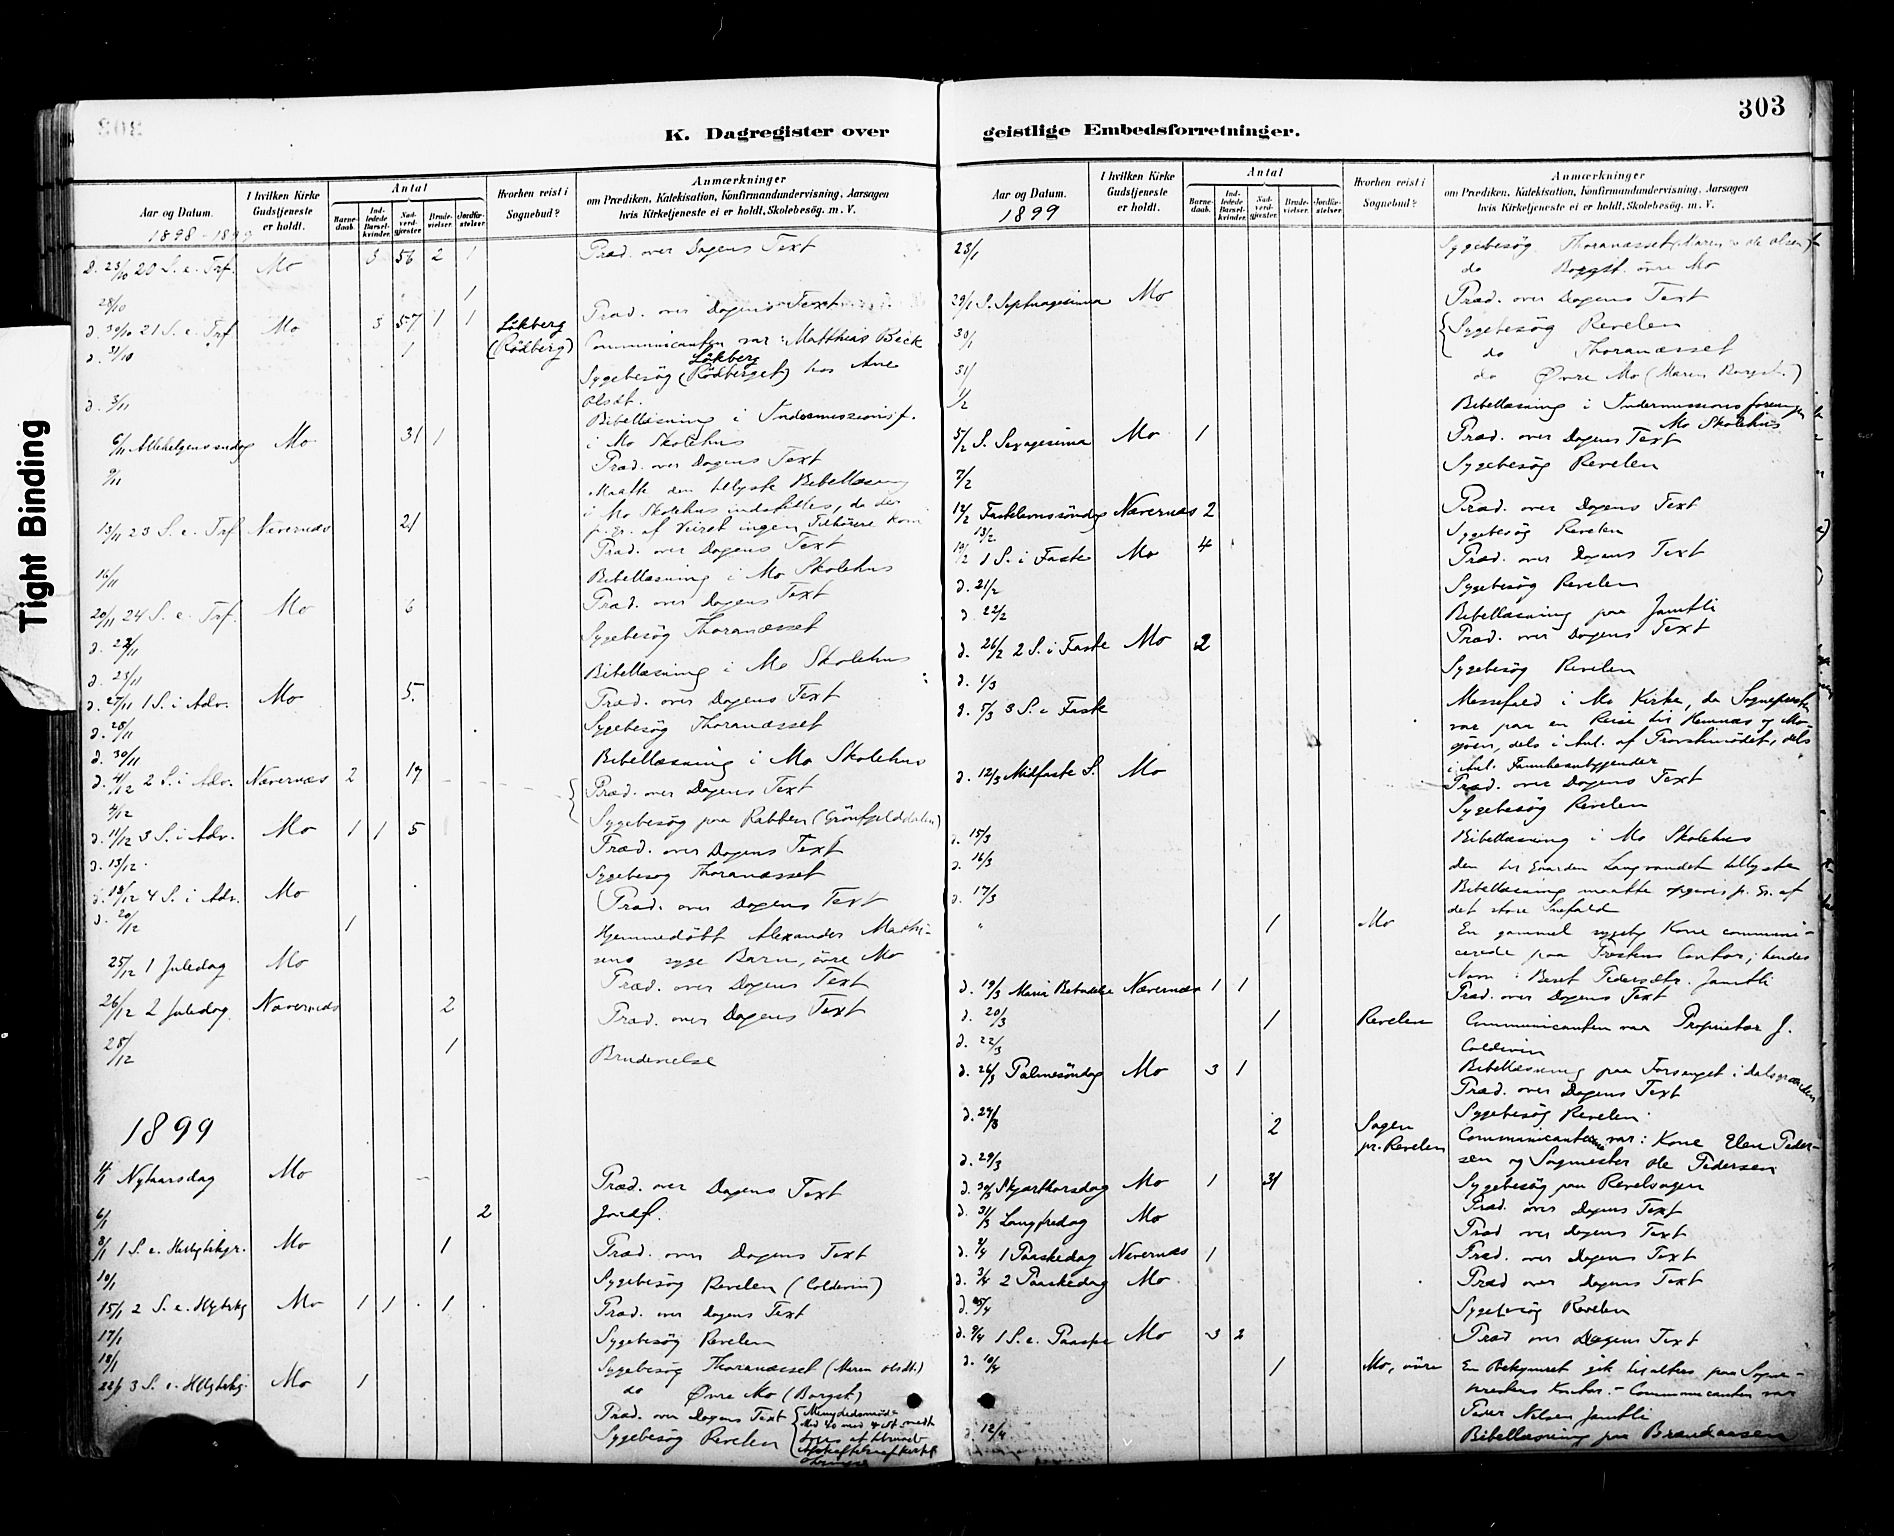 Tight Binding
303
K. Dagregister over geistlige Embedsforretninger.
Aar og Datum. 1898-1899
I hvilken Kirke Gudstjeneste er holdt.
Antal
Barnedaab.
Indledede Barselkvinder.
Nadverdgjester
Brudevielser.
Jordfæstelser
Hvorhen reist i Sognebud?
Anmærkninger
om Prædiken, Katekisation, Konfirmandundervisning, Aarsagen
hvis Kirketjeneste ei er holdt, Skolebesøg. m. V.
D. 23/10 20 S. e. Trf. Mo 3 56 2 1 Præd. over Dagens Text
28/10 1
d. 30/10 21 S. e. Trf. Mo 3 57 1 1 Præd. over Dagens Text
d. 31/10 1 Løkberg (Rødberg) Communicanten var: Matthias Beck
Sygebesøg Løkberg (Rødberget) hos Ane
Olsdt.
d. 3/11 Bibellæsning i Indremissionsf.
i Mo Skolehus
6/11 Allehelgenssøndag Mo 31 1 Præd. over Dagens Text
9/11 Maatte den tillyste Bibellæsning
i Mo Skolehus indstilles, da der
p. Gr. af Veiret ingen Tilhørere kom
13/11 23 S. e. Trf Nævernæs 21 Præd. over Dagens Text
16/11 Bibellæsning i Mo Skolehus
20/11 24 S. e. Trf. Mo 6 Præd. over Dagens Text
d. 22/11 Sygebesøg Thoranæsset
d. 23/11 Bibellæsning i Mo Skolehus
d. 27/11 1 S. i Adv. Mo 5. Præd. over Dagens Text
d. 28/11 Sygebesøg Thoranæsset
d. 30/11 Bibellæsning i Mo Skolehus
d. 4/12 2 S. i Adv. Nævernæs 2 17 Præd. over Dagens Text
4/12 Sygebesøg paa Rabben (Grønfjelddalen)
d. 11/12 3 S. i Adv. Mo 1 1 5 Præd. over Dagens Text
d. 13/12. Sygebesøg Thoranæsset
d. 18/12 4 S. i Adv. Mo Præd. over Dagens Text
d. 20/12 1 Hjemmedøbt Alexander Mathi-
sens syge Barn, øvre Mo
25/12 1 Juledag Mo Præd. over Dagens Text
26/12 2 Juledag. Nævernæs 2 Præd. over Dagens Text
28/12 1 Brudevielse
1899
1/1 Nytaarsdag Mo Præd. over Dagens Text
6/1 2 Jordf.
8/1 1 S. e. Helligtrkgr. Mo 1 Præd. over Dagens Text
10/1 Sygebesøg Revelen (Coldevin)
15/1 2 S. e. Hlgtrkg Mo 1 1 1 Præd. over Dagens Text
17/1 Sygebesøg Revelen
18/1 Sygebesøg Thoranæsset (Maren Olsdt.)
do Øvre Mo (Borgst.)
22/1 3 S. e. Hlligtrkg. Mo 1 Præd. over Dagens Text
Sygebesøg Revelen
Aar og Datum. 1899
I hvilken Kirke Gudstjeneste er holdt.
Antal
Barnedaab.
Indledede Barselkvinder.
Nadverdgjester
Brudevielser.
Jordfæstelser
Hvorhen reist i Sognebud?
Anmærkninger
om Prædiken, Katekisation, Konfirmandundervisning, Aarsagen
hvis Kirketjeneste ei er holdt, Skolebesøg. m. V.
23/1 Sygebesøg Thoranæsset
do Borgst. øvre Mo
29/1 S. Septuagesima Mo Præd. over Dagens Text
30/1 Sygebesøg Revelen
do Thoranæsset
31/1 do Øvre Mo (Maren Borgst.)
1/2 Bibellæsning i Indremissionsforeningen
Mo Skolehus
5/2 S. Sexagesima Mo 1 Præd. over Dagens Text
7/2 Sygebesøg Revelen
12/2 Fastelavnssøndag Nævernæs 2 Præd. over Dagens Text
13/2 Sygebesøg Revelen
19/2 1 S. i Faste Mo 4 Præd. over Dagens Text
d. 21/2 Sygebesøg Revelen
d. 22/2 Bibellæsning paa Jamtli
d. 26/2 2 S. i Faste Mo 2 Præd. over Dagens Text
d. 1/3 Sygebesøg Revelen
d. 5/3 3 S. i Faste Messefald i Mo Kirke, da Sognepresten
var paa en Reise til Hemnæs og Mo-
sjøen, dels i Anl. af Provstimødet, dels
i Anl. Familieanliggender
d. 12/3 Midfaste S. Mo Præd. over Dagens Text
Sygebesøg Revelen
d. 15/3 Bibellæsning i Mo Skolehus
d. 16/3 den til Gaarden Langvandet tillyste
Bibellæsning maatte opgives p. Gr. af
det store Snefald
d. 17/3
" 1 Mo En gammel sygelig Kone communi-
cerede paa Prestens Contor; hendes
Navn: Beret Pedersdtr. Jamtli
d. 19/3 Mariæ Bebudelse Nævernæs 1 1 Præd. over Dagens Text
d. 20/3 1 Revelen Communicanten var Proprietær J.
Coldevin
d. 22/3 Bibellæsning paa Forsanget i Dalsgrænden
d. 26/3 Palmesøndag Mo 3 1 Præd. over Dagens Text
d. 27/3 Sygebesøg Revelen.
2 Sagen pr. Revelen Communicanterne var: Kone Elen Peder-
sen og Sagmester Ole Pedersen
d. 29/3 Sygebesøg paa Revelsagen
d. 30/3 Skjærthorsdag Mo 1 31 Præd. over Dagens Text
d. 31/3 Langfredag Mo Præd over Dagens Text
d. 2/4 1 Paaskedag Nævernæs 1 Præd. over Dagens Text
d. 3/4 2 Paaskedag Mo. Præd over Dagens Text
d. 5/4 Sygebesøg Revelen
d. 9/4 1 S. e. Paaske Mo 3 2 Præd over Dagens Text
d. 10/4 1 Mo, øvre En Bekymret gik til alters paa Sogne-
prestens Kontor. - Communicanten var
Peder Nilsen Jamtli
d. 12/4 Bibellæsning paa Brændaasen